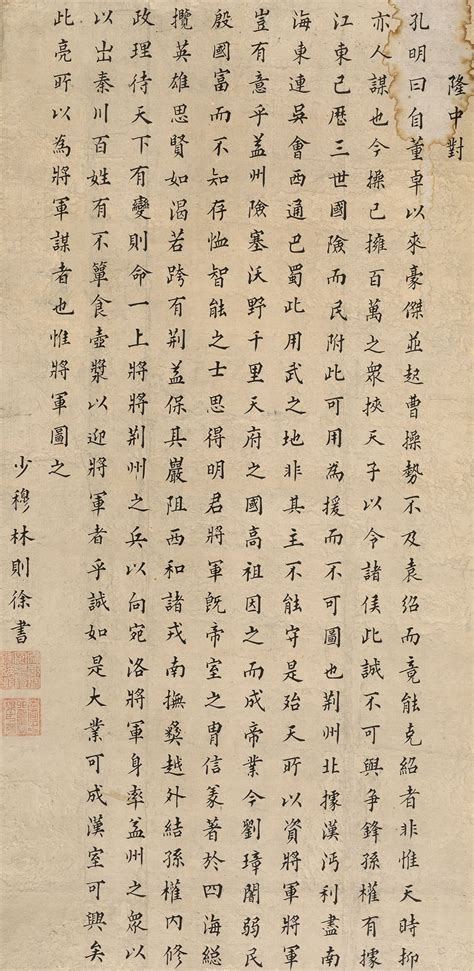 隆中對
孔明曰自董卓以來豪傑並起曹操勢不及袁紹而竟能克紹者非惟天時抑
亦人謀也今操已擁百萬之眾挾天子以令諸侯此誠不可與爭鋒孫權有據
江東已歷三世國險而民附此可用為援而不可圖也荆州北據漢沔利盡南
海東連吳會西通巴蜀此用武之地非其主不能守是殆天所以資將軍將軍
豈有意乎益州險塞沃野千里天府之國高祖因之而成帝業今劉璋闇弱民
殷國富而不知存恤智能之士思得明君將軍既帝室之胄信義著於四海總
攬英雄思賢如渴若跨有荆益保其巖阻西和諸戎南撫彝越外結孫權內修
政理待天下有變則命一上將將荆州之兵以向宛洛將軍身率益州之眾以
以出秦川百姓有不簞食壺漿以迎將軍者乎誠如是大業可成漢室可興矣
此亮所以為將軍謀者也惟將軍圖之
少穆林則徐書